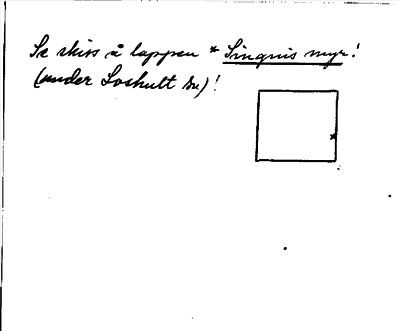 Se skiss å lappen * Singnis myr!
(under Loshult sn)!
*